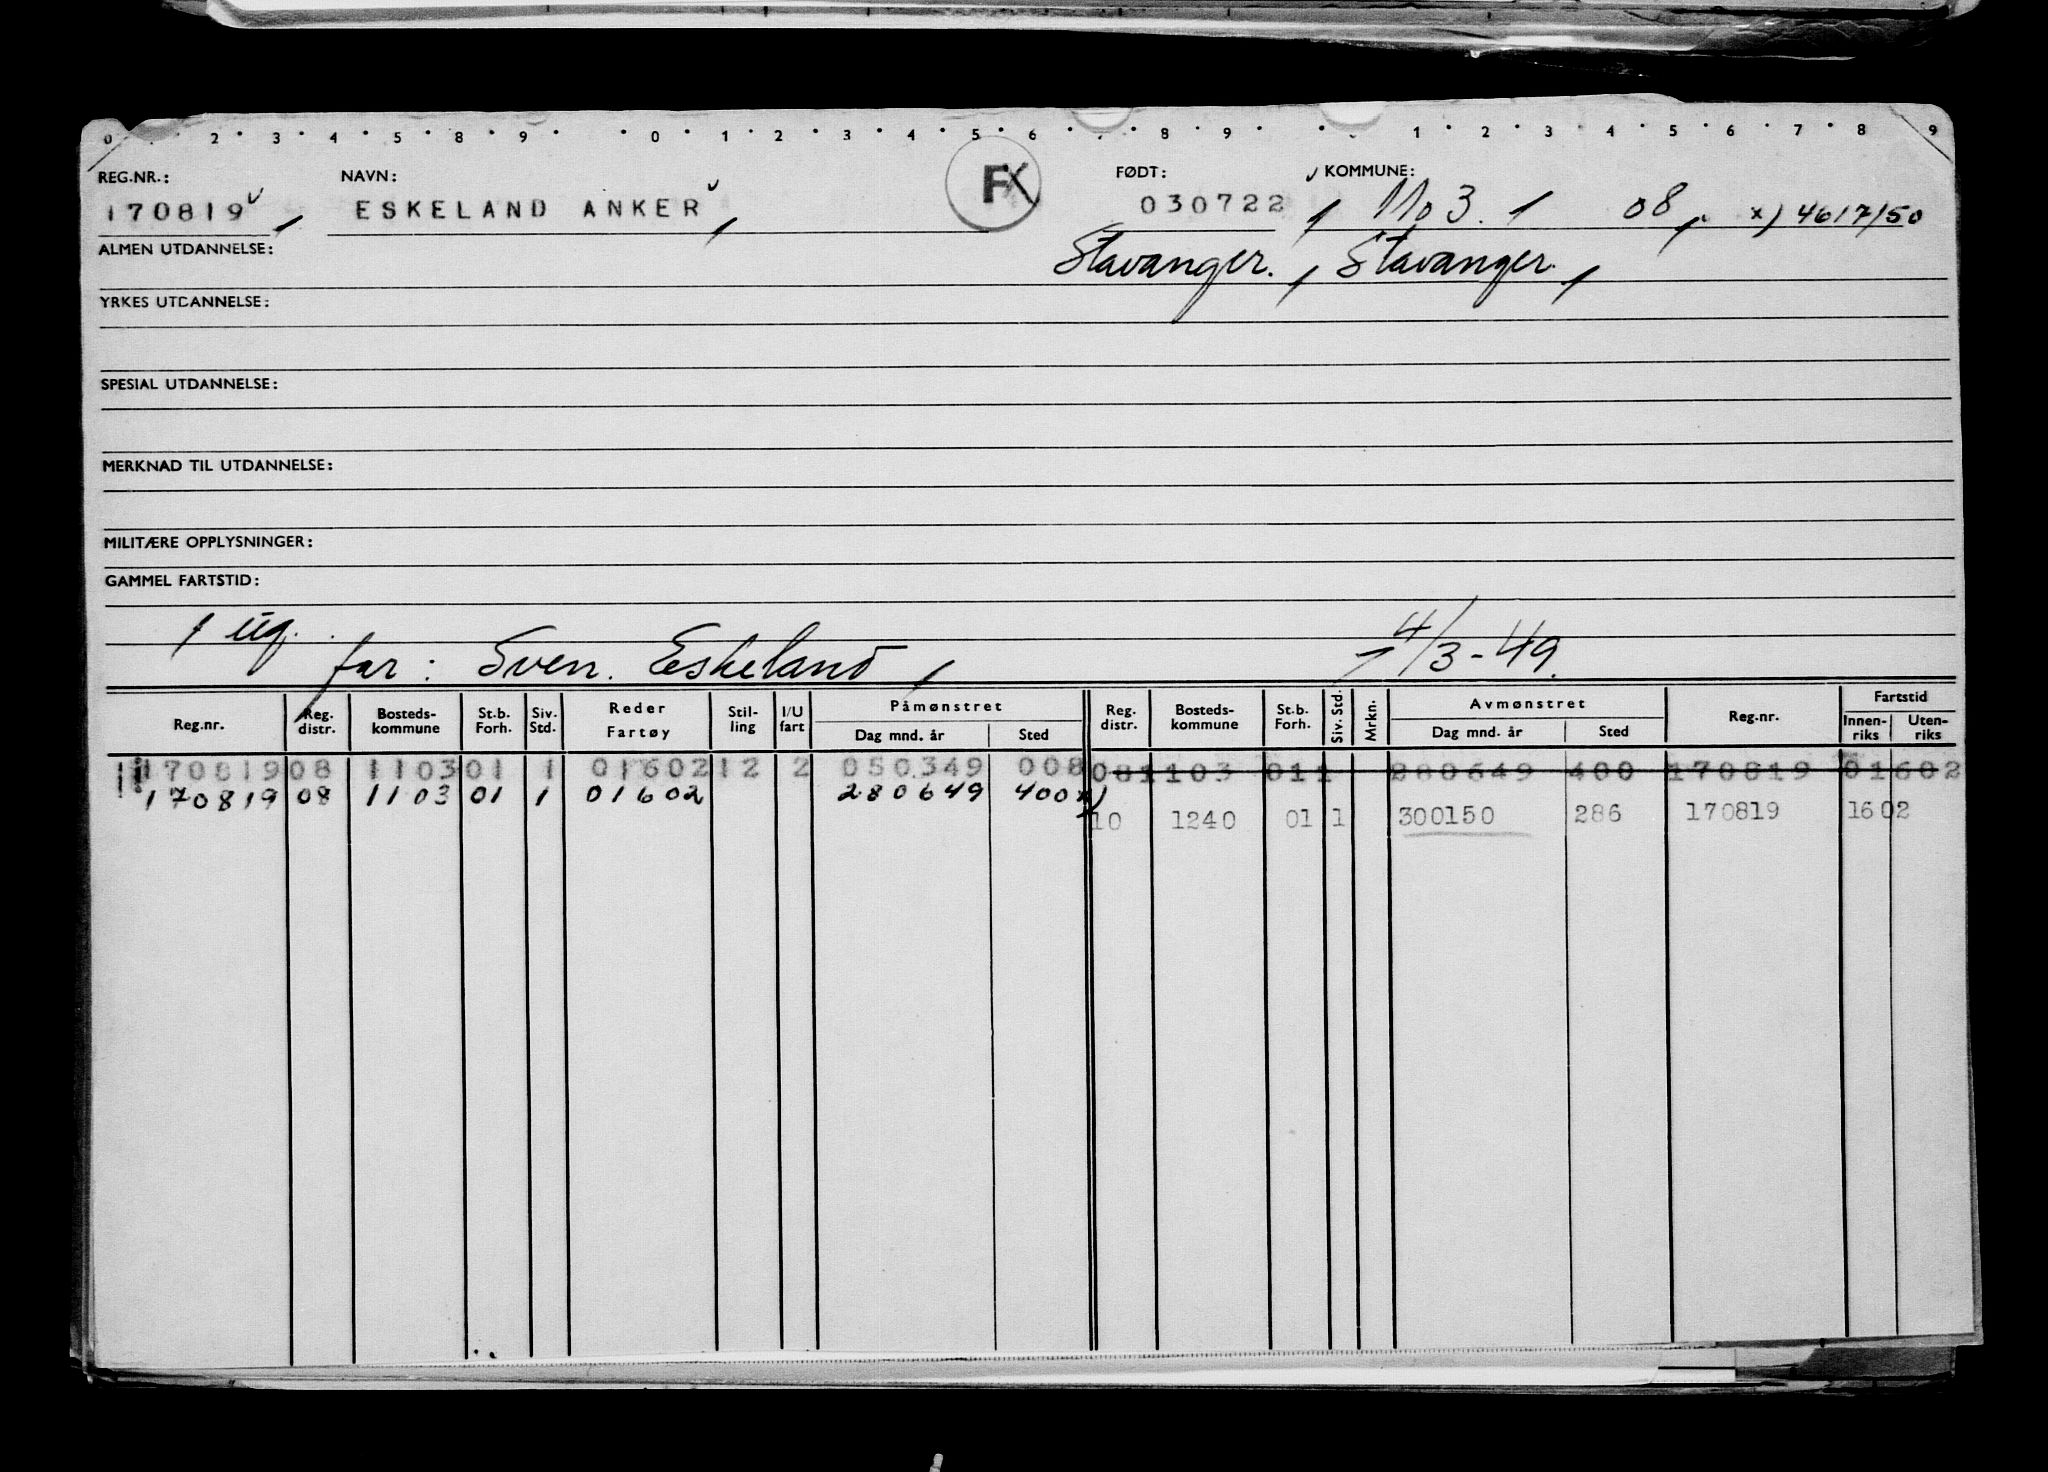 0 2 3 4 5 8 9 0 1 2 3 4 5 6 8 9 1 2 3 4 5 6 7 8 9
REG.NR.: NAVN: FX FØDT: KOMMUNE:
170819 ESKELAND ANKER 030722 1103. 1 08, x) 4617/50
ALMEN UTDANNELSE: Stavanger. Stavanger
YRKES UTDANNELSE:
SPESIAL UTDANNELSE:
MERKNAD TIL UTDANNELSE:
MILITÆRE OPPLYSNINGER:
GAMMEL FARTSTID:
1 ug.
far: Sven. Eskeland, 4/3-49.
Reg.nr. Reg. distr. Bosteds-kommune St.b. Forh. Siv. Std. Reder Fartøy Stil-ling I/U fart Påmønstret Dag mnd. år Sted Reg. distr. Bosteds-kommune St.b. Forh. Siv. Std. Mrkn. Avmønstret Dag mnd. år Sted Reg.nr. Fartstid Innen-riks Uten-riks
170819 08 1103 01 1 01602 12 2 050349 008 08 1103 01 1 280649 400 170819 01602
170819 08 1103 01 1 01602 280649 400 x)
10 1240 01 1 300150 286 170819 1602